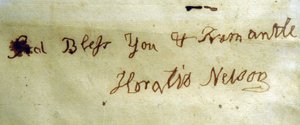 God Bless You & Fremantle
Horatio Nelson